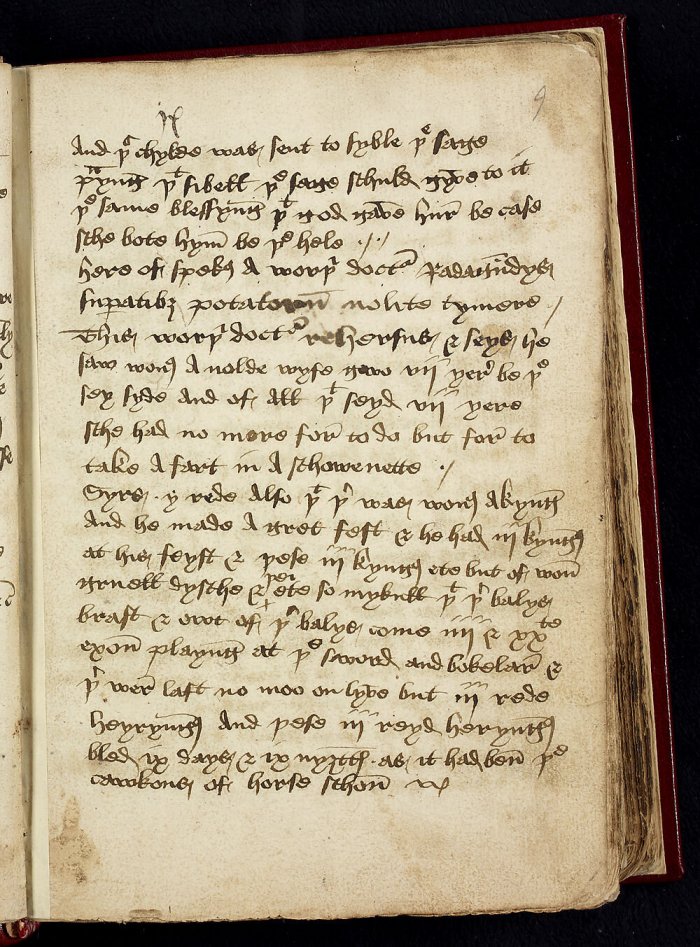 And þᵗ chylde was sent to syble þᵉ sage
þᵗ sibell þᵉ sage schuld gyve to it
þᵉ same blessyng þᵗ god gave hur be case
sche bote hym be þᵉ hele ·//
here of spekꝭ A worþ doctʳ
potatorum nolite tymere ·/
This worþ doctʳ rehersus & seys he
saw wonꝭ A nolde wyfe gwo vii yer be þᵉ
sey syde And of All þᵗ seyd vii yere
sche had no more for to do but for to
take A fart in A schowenette ·/
Syrs · y rede Also þᵗ þʳ was wonꝭ A kyng
And he made A gret fest & he had iii kyngꝭ
at his feyst & þese iii kyngꝭ ete but of won
gruell dysche & þei ete so mykull þᵗ þʳ balys
brast & owt of þʳ balys come iiii & xxᵗᵉ
oxon playng at þᵉ sword and bokelar &
þʳ wer last no moo on lyve but iii rede
heyryngꝭ And þese iii reyd heryngꝭ
bled ix days & ix nyȝth · as it had ben þᵉ
cawkons of horse schon
9